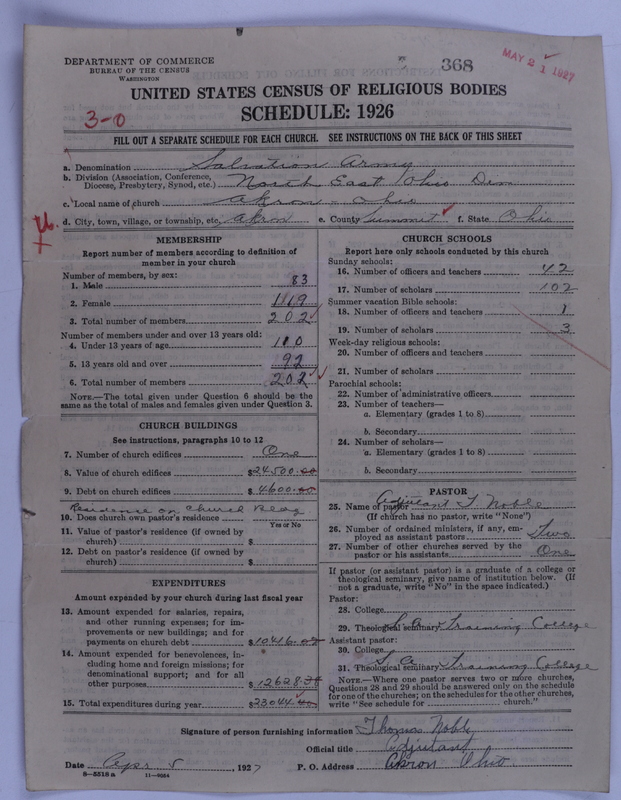 DEPARTMENT OF COMMERCE
BUREAU OF THE CENSUS
WASHINGTON
368
MAY 21 1927
UNITED STATES CENSUS OF RELIGIOUS BODIES
SCHEDULE: 1926
3-0
FILL OUT A SEPARATE SCHEDULE FOR EACH CHURCH. SEE INSTRUCTIONS ON THE BACK OF THIS SHEET
a. Denomination Salvation Army
b. Division (Association, Conference, Diocese, Presbytery, Synod, etc.) North East Ohio Divn
c. Local name of church Akron - Ohio
d. City, town, village, or township, etc. Akron e. County Summit f. State Ohio
MEMBERSHIP
Report number of members according to definition of member in your church
Number of members, by sex:
1. Male 83
2. Female 119
3. Total number of members 202
Number of members under and over 13 years old:
4. Under 13 years of age 110
5. 13 years old and over 92
6. Total number of members 202
NOTE.—The total given under Question 6 should be same as the total of males and females given under Question 3.
CHURCH BUILDINGS
See instructions, paragraphs 10 to 12
7. Number of church edifices One
8. Value of church edifices $24500.00
9. Debt on church edifices $4600.00
Residence on Church Bldg
10. Does church own pastor's residence
Yes or No
11. Value of pastor's residence (if owned by church) $
12. Debt on pastor's residence (if owned by church) $
EXPENDITURES
Amount expended by your church during last fiscal year
13. Amount expended for salaries, repairs, and other running expenses; for improvements or new buildings; and for payments on church debt $10416.02
14. Amount expended for benevolences, including home and foreign missions; for denominational support; and for all other purposes $12628.38
15. Total expenditures during year $23044.40
CHURCH SCHOOLS
Report here only schools conducted by this church
Sunday schools:
16. Number of officers and teachers 42
17. Number of scholars 102
Summer vacation Bible schools:
18. Number of officers and teachers 1
19. Number of scholars 3
Week-day religious schools:
20. Number of officers and teachers
21. Number of scholars
Parochial schools:
22. Number of administrative officers
23. Number of teachers—
a. Elementary (grades 1 to 8)
b. Secondary
24. Number of scholars—
a. Elementary (grades 1 to 8)
b. Secondary
PASTOR
25. Name of pastor Adjutant T Noble
(If church has no pastor, write "None")
26. Number of ordained ministers, if any, employed as assistant pastors Two
27. Number of other churches served by the pastor or his assistants One
If pastor (or assistant pastor) is a graduate of a college or theological seminary, give name of institution below. (If not a graduate, write "No" in the space indicated.)
Pastor:
28. College
29. Theological seminary S. A. Training College
Assistant pastor:
30. College
31. Theological seminary S. A. Training College
NOTE.—Where one pastor serves two or more churches, Questions 28 and 29 should be answered only on the schedule for one of the churches; on the schedules for the other churches, write "See schedule for church."
Signature of person furnishing information Thomas Noble
Official title Adjutant
Date Apr 5, 1927 P. O. Address Akron Ohio
8-5518a 11-9084